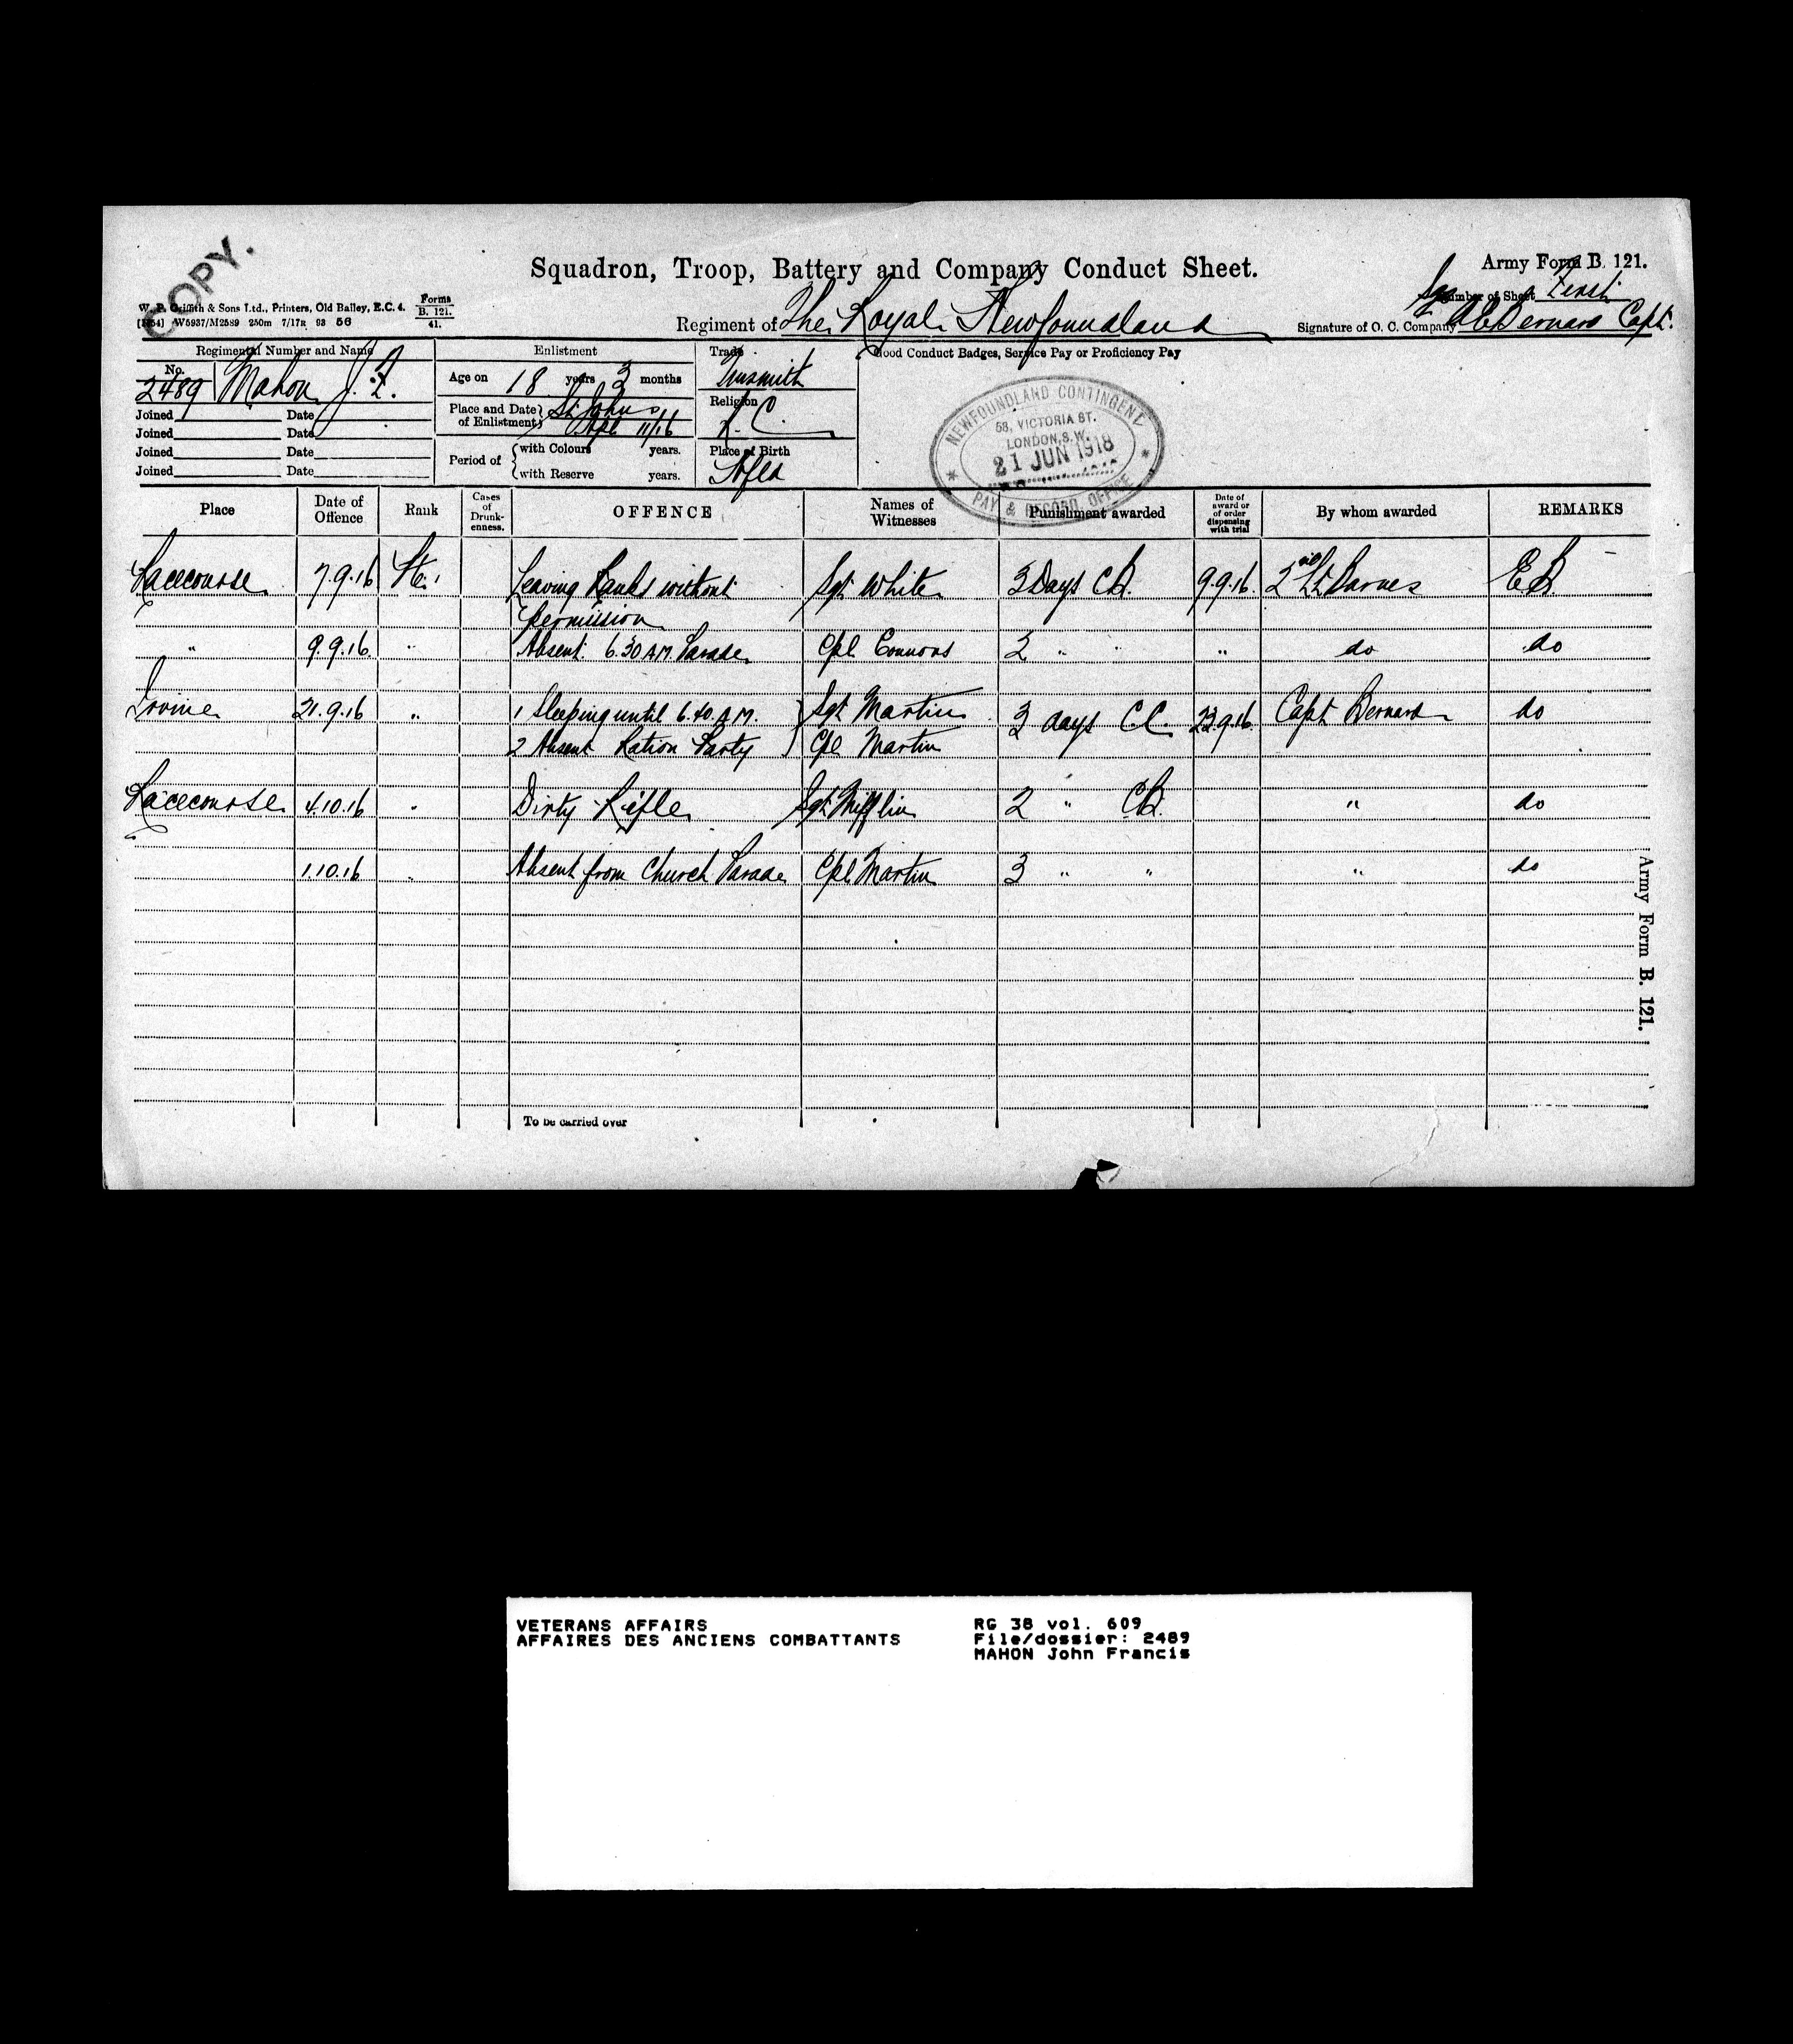 COPY.
Squadron, Troop, Battery and Company Conduct Sheet.
Army Form B. 121.
W. P. Griffith & Sons Ltd., Printers, Old Bailey, E.C. 4. Forms B. 121. 41.
W5937/M2589 250m 7/17R 93 56
Number of Sheet First
Regiment of The Royal Newfoundland
Signature of O. C. Company Bernard Capt.
Regimental Number and Name
Enlistment
Trade
Good Conduct Badges, Service Pay or Proficiency Pay
No. 2489 Mahon J. F.
Age on 18 years 3 months
Tinsmith
Joined Date
Place and Date of Enlistment St. Johns 11/16
Religion R. C.
Joined Date
Joined Date
Period of with Colours years.
Place of Birth Nfld
Joined Date
with Reserve years.
NEWFOUNDLAND CONTINGENT
58, VICTORIA ST.
LONDON, S.W.
21 JUN 1918
PAY & RECORD OFFICE
Place Date of Offence Rank Cases of Drunkenness. OFFENCE Names of Witnesses Punishment awarded Date of award or of order dispensing with trial By whom awarded REMARKS
Racecourse 7.9.16 Pte. Leaving Ranks without Sgt White 3 Days CB. 9.9.16. 2nd Lt Barnes EB.
Permission
" 9.9.16. " Absent 6.30 AM. Parade Cpl Connors 2 " " " do do
Irvine 21.9.16 " 1 Sleeping until 6.40. AM. Sgt Martin 3 days C.C. 22.9.16. Capt Bernard do
2 Absent Ration Party Cpl Martin
Racecourse 4.10.16 " Dirty Rifle Sgt Mifflin 2 " CB. " do
1.10.16 " Absent from Church Parade Cpl Martin 3 " " " do
Army Form B. 121.
To be carried over
VETERANS AFFAIRS
AFFAIRES DES ANCIENS COMBATTANTS
RG 38 vol. 609
File/dossier: 2489
MAHON John Francis